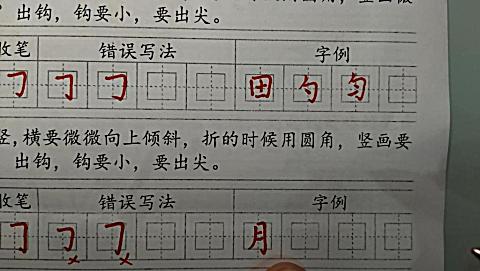 出钩，钩要小，要出尖。
收笔 错误写法 字例
田 勺 匀
竖，横要微微向上倾斜，折的时候用圆角，竖画要
出钩，钩要小，要出尖。
收笔 错误写法 字例
月